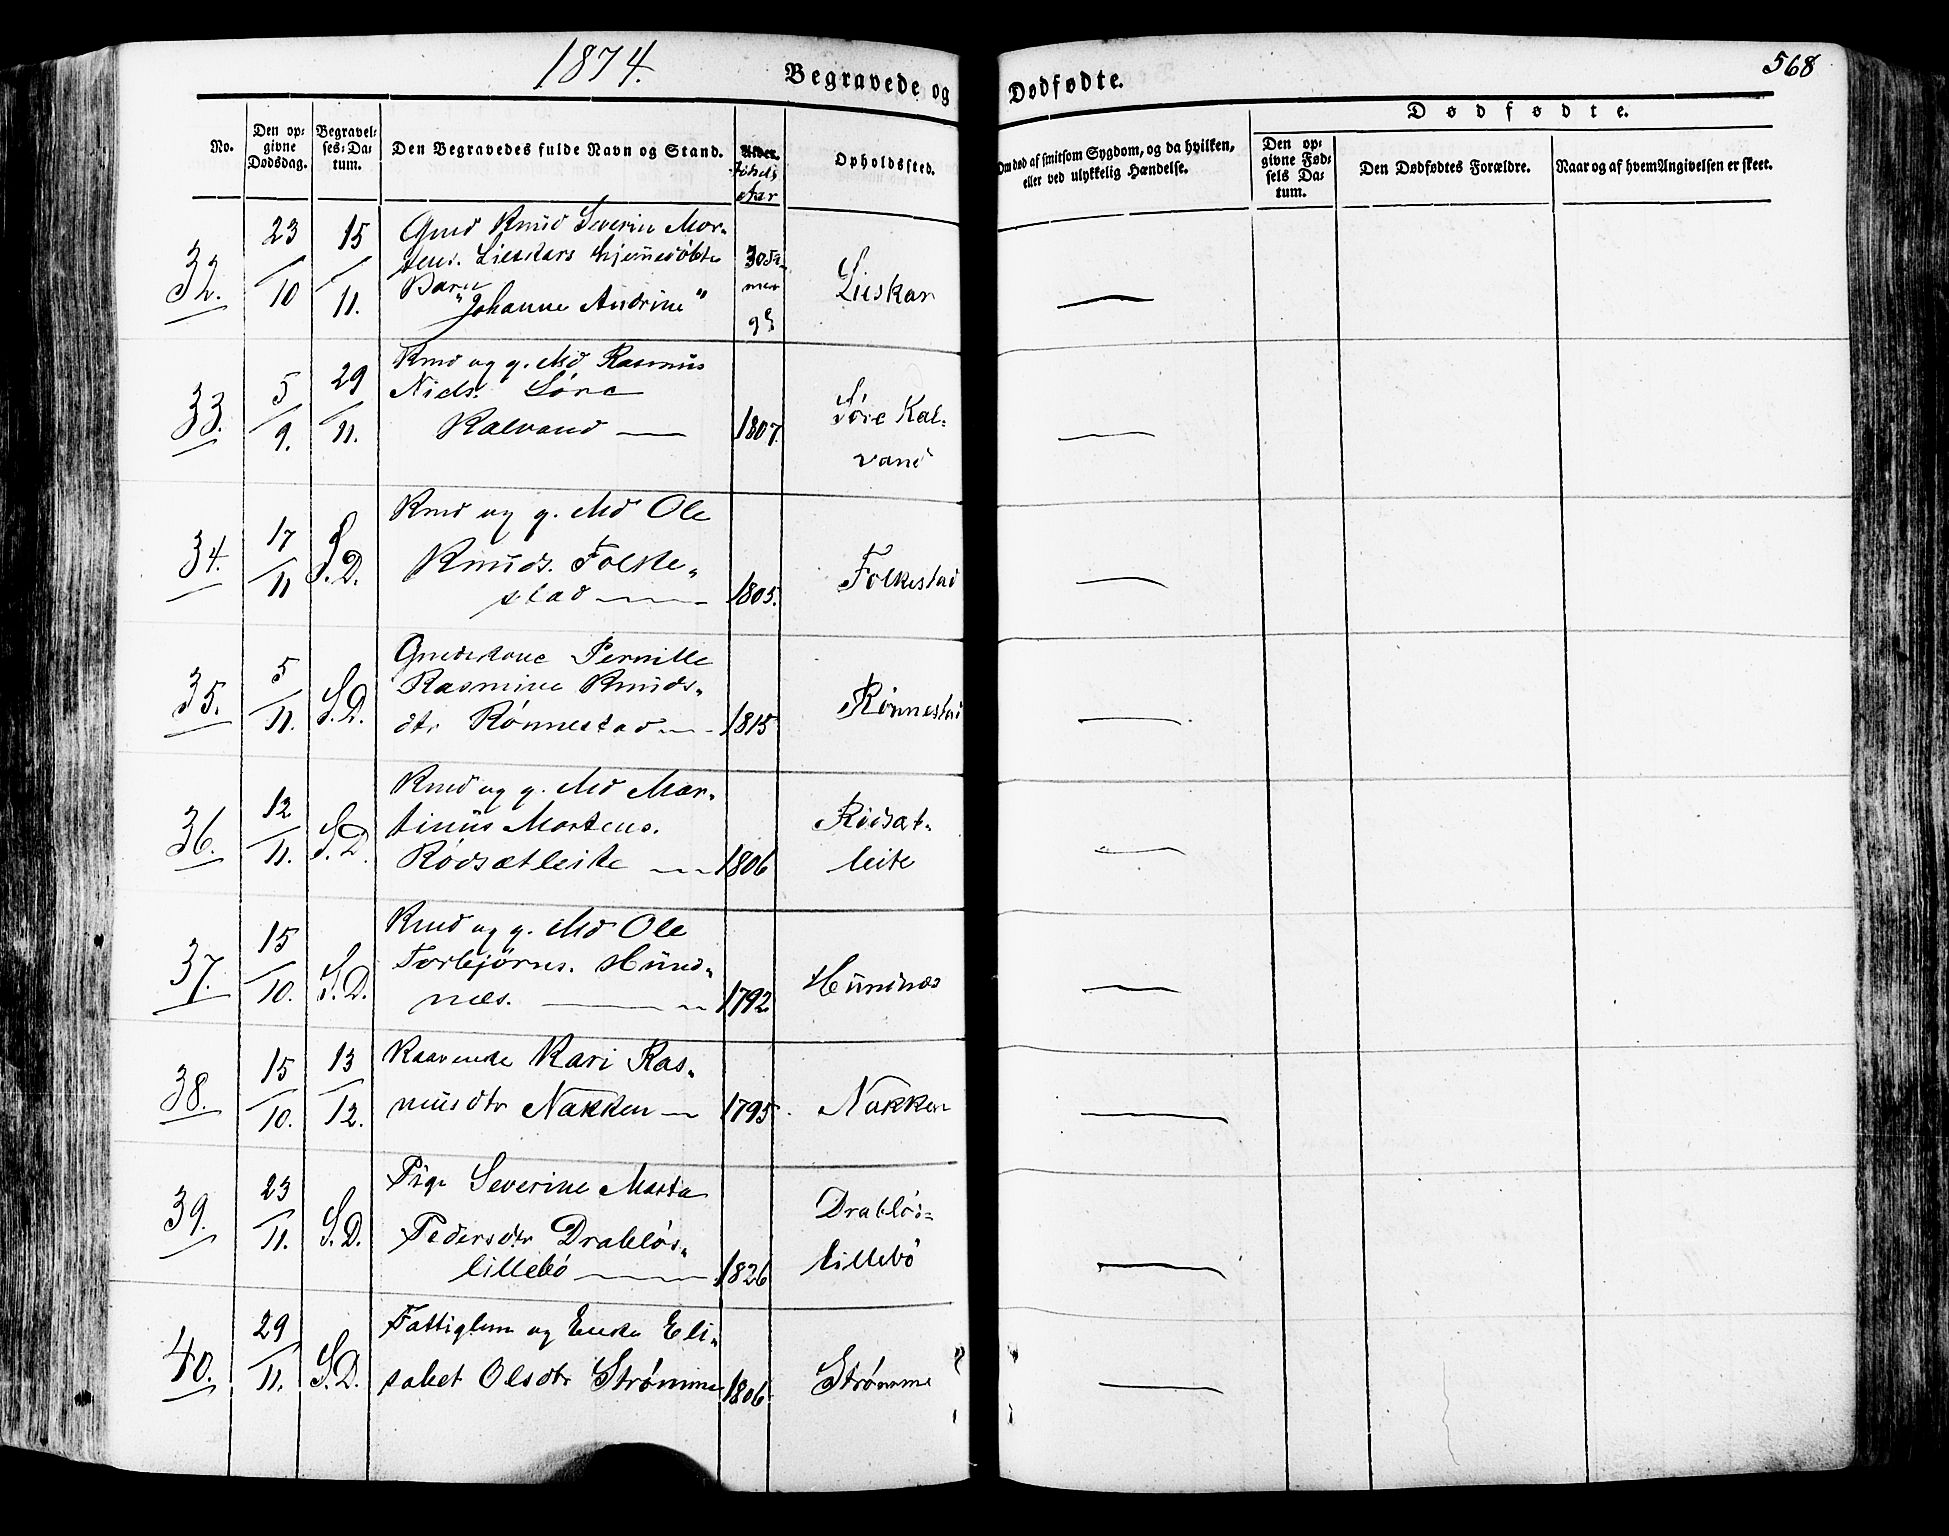 1874.
Begravede og Dødfødte.
568
No.
Den op-
givne
Dødsdag.
Begravel-
ses-Da-
tum.
Den Begravedes fulde Navn og Stand.
Alder.
Fødsels
Aar
Opholdssted.
Om død af smitsom Sygdom, og da hvilken,
eller ved ulykkelig Hændelse.
Dødfødte.
Den op-
givne Fød-
sels Da-
tum.
Den Dødfødtes Forældre.
Naar og af hvem Angivelsen er skeet.
32.
23/10
15/11.
Gmd Knud Severin Mor-
tens. Lieskars hjemmedøbte
Barn
"Johanne Andrine"
Lieskar
33.
5/9.
29/11.
Kmd og g. Md Rasmus
Niels. Søre
Kalvand
1807.
Søre Kal-
vand
34.
17/11
S.D.
Kmd og g. Md Ole
Knuds. Folke-
stad
1805.
Folkestad
35.
5/11.
S.D.
Gmdskone Pernille
Rasmine Knuds-
dtr Rønnestad
1815
Rønnestad
36.
12/11.
S.D.
Kmd og g. Md Mar-
tinus Mortens.
Rødsætleite
1806
Rødsæt-
leite
37.
15/10.
S.D.
Kmd og g. Md Ole
Torbjørns. Hund-
næs.
1792
Hundnæs
38.
15/10.
13/12.
Kaarenke Kari Ras-
musdtr Nakken
1795.
Nakken
39.
23/11.
S.D.
Pige Severine Marta
Pedersdtr Drabløs-
lillebø
1826
Drabløs-
lillebø
40.
29/11.
S.D.
Fattiglem og Enke Eli-
sabet Olsdtr Strømme
1806
Strømme